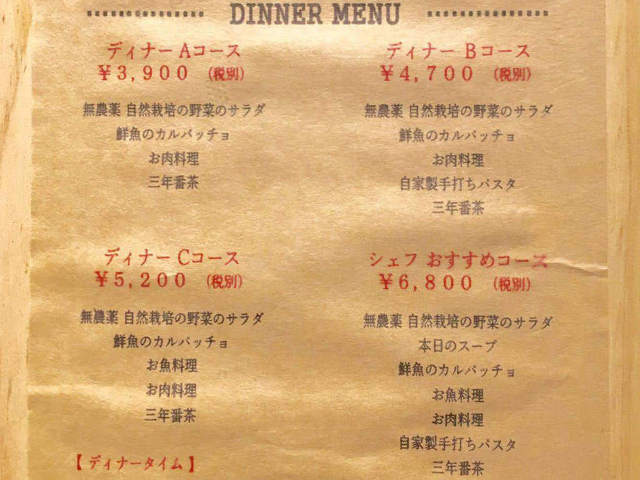 DINNER MENU
ディナー Aコース
￥3,900 （税別）
無農薬 自然栽培の野菜のサラダ
鮮魚のカルパッチョ
お肉料理
三年番茶
ディナー Bコース
￥4,700 （税別）
無農薬 自然栽培の野菜のサラダ
鮮魚のカルパッチョ
お肉料理
自家製手打ちパスタ
三年番茶
ディナー Cコース
￥5,200 （税別）
無農薬 自然栽培の野菜のサラダ
鮮魚のカルパッチョ
お魚料理
お肉料理
三年番茶
シェフ おすすめコース
￥6,800 （税別）
無農薬 自然栽培の野菜のサラダ
本日のスープ
鮮魚のカルパッチョ
お魚料理
お肉料理
自家製手打ちパスタ
三年番茶
【 ディナータイム 】